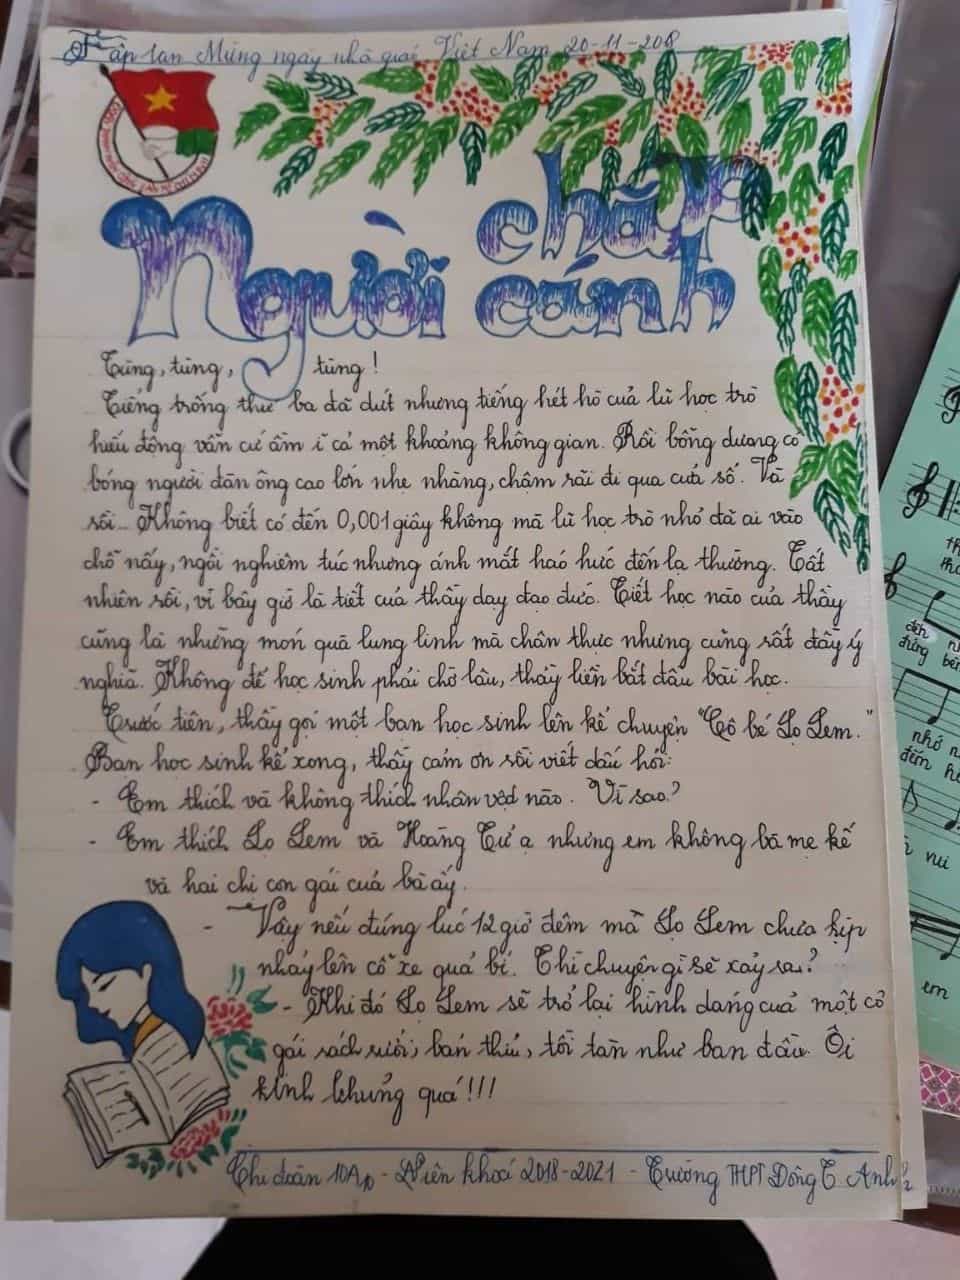 Tập san Mừng ngày nhà giáo Việt Nam 20-11-2018
Người chắp cánh
Tùng, tùng, tùng!
Tiếng trống thứ ba đã dứt nhưng tiếng hét hò của lũ học trò
hiếu động vẫn cứ ầm ĩ cả một khoảng không gian. Rồi bỗng dưng có
bóng người đàn ông cao lớn nhẹ nhàng, chậm rãi đi qua cửa sổ. Và
rồi... Không biết có đến 0,001 giây không mà lũ học trò nhỏ đã ai vào
chỗ nấy, ngồi nghiêm túc nhưng ánh mắt háo hức đến lạ thường. Tất
nhiên rồi, vì bây giờ là tiết của thầy dạy đạo đức. Tiết học nào của thầy
cũng là những món quà lung linh mà chân thực nhưng cũng rất đầy ý
nghĩa. Không để học sinh phải chờ lâu, thầy liền bắt đầu bài học.
Trước tiên, thầy gọi một bạn học sinh lên kể chuyện "Cô bé Lọ Lem."
Bạn học sinh kể xong, thầy cám ơn rồi viết dấu hỏi:
- Em thích và không thích nhân vật nào. Vì sao?
- Em thích Lọ Lem và Hoàng Tử ạ nhưng em không bà mẹ kế
và hai chị con gái của bà ấy.
- Vậy nếu đúng lúc 12 giờ đêm mà Lọ Lem chưa kịp
nhảy lên cỗ xe quả bí. Thì chuyện gì sẽ xảy ra?
- Khi đó Lọ Lem sẽ trở lại hình dáng của một cô
gái rách rưới, bẩn thỉu, tồi tàn như ban đầu. Ôi
kinh khủng quá!!!
Chi đoàn 10A10 - Niên khoá 2018-2021 - Trường THPT Đông
đến
đứng bên
nhớ
đến
vui
em